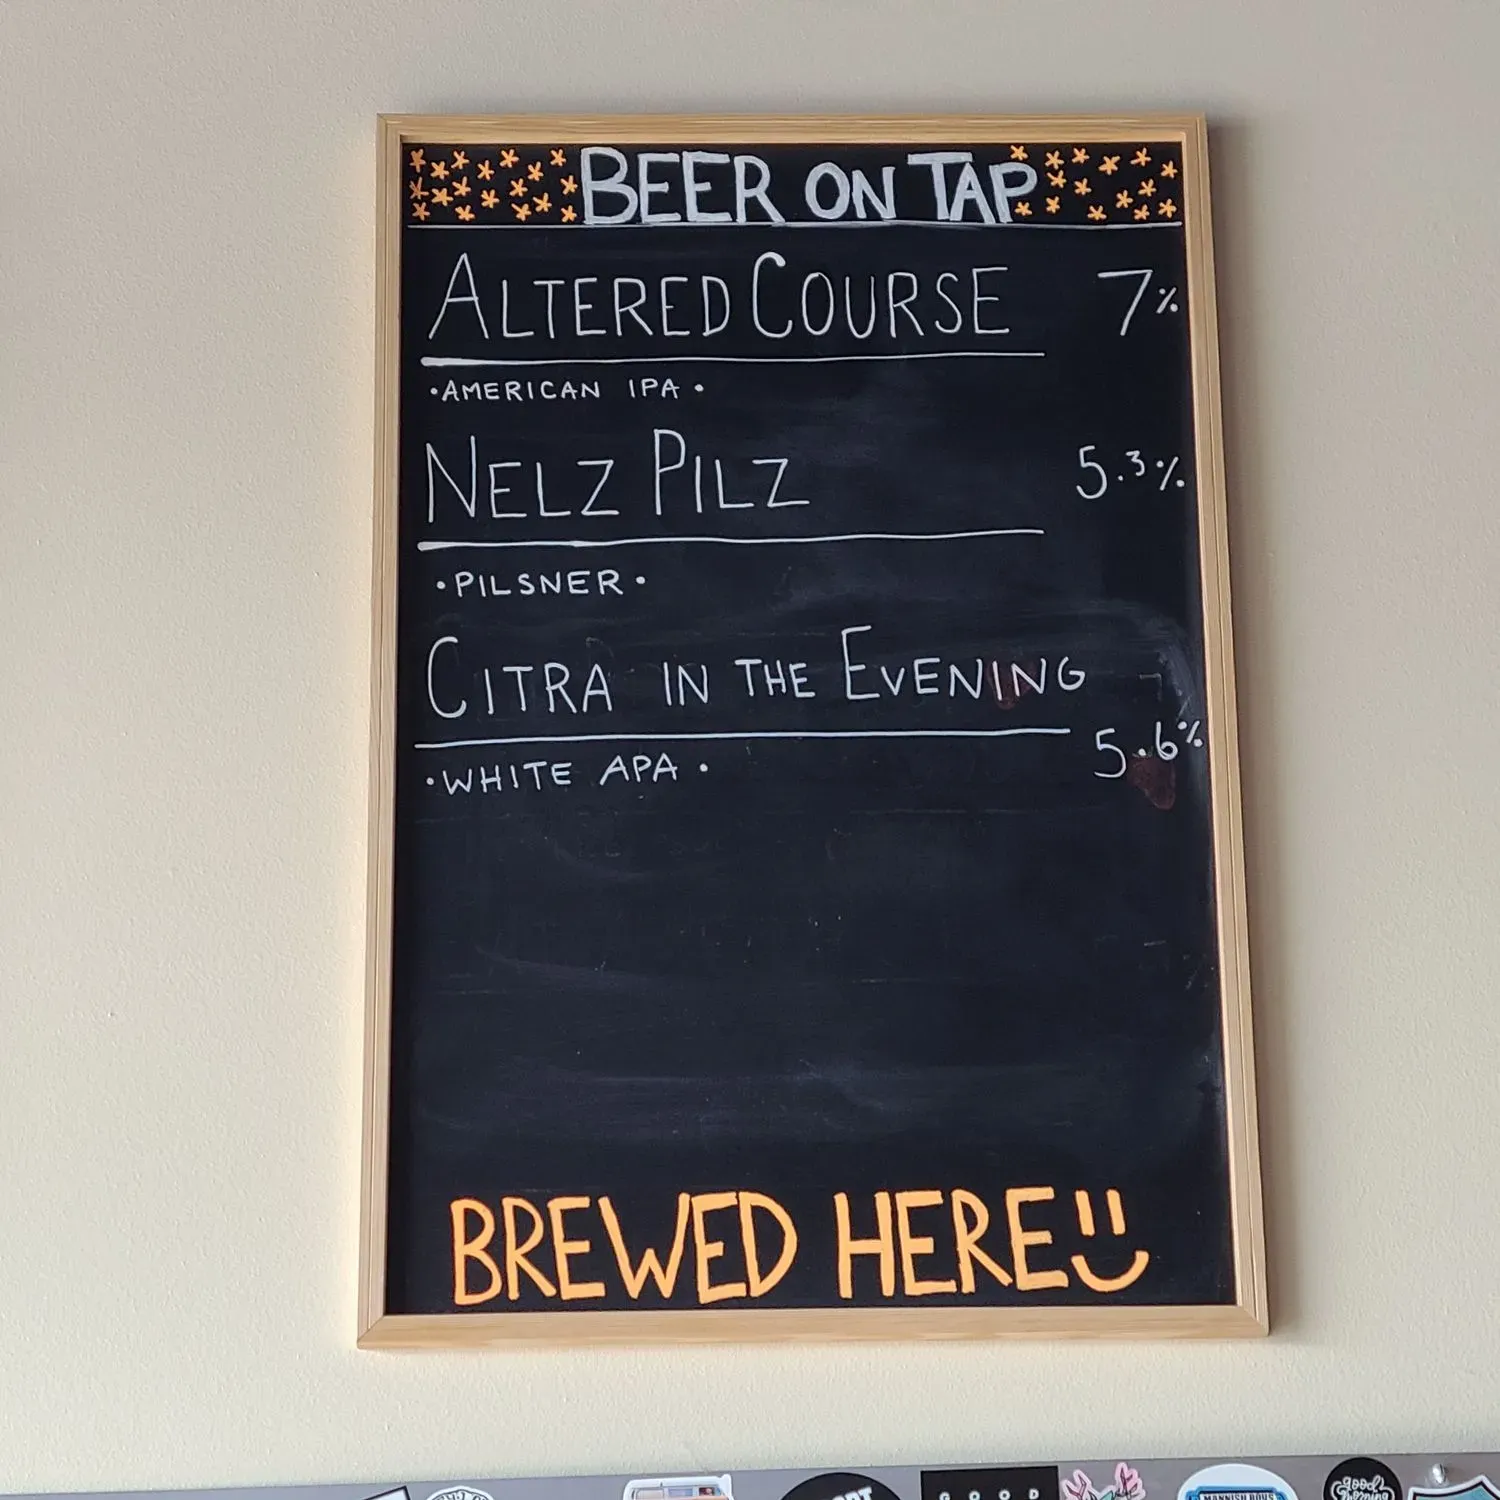 BEER ON TAP
ALTERED COURSE 7%
•AMERICAN IPA•
NELZ PILZ 5.3%
•PILSNER•
CITRA IN THE EVENING
5.6%
•WHITE APA•
BREWED HERE
GOOD
good morning
MANNISH BOYS